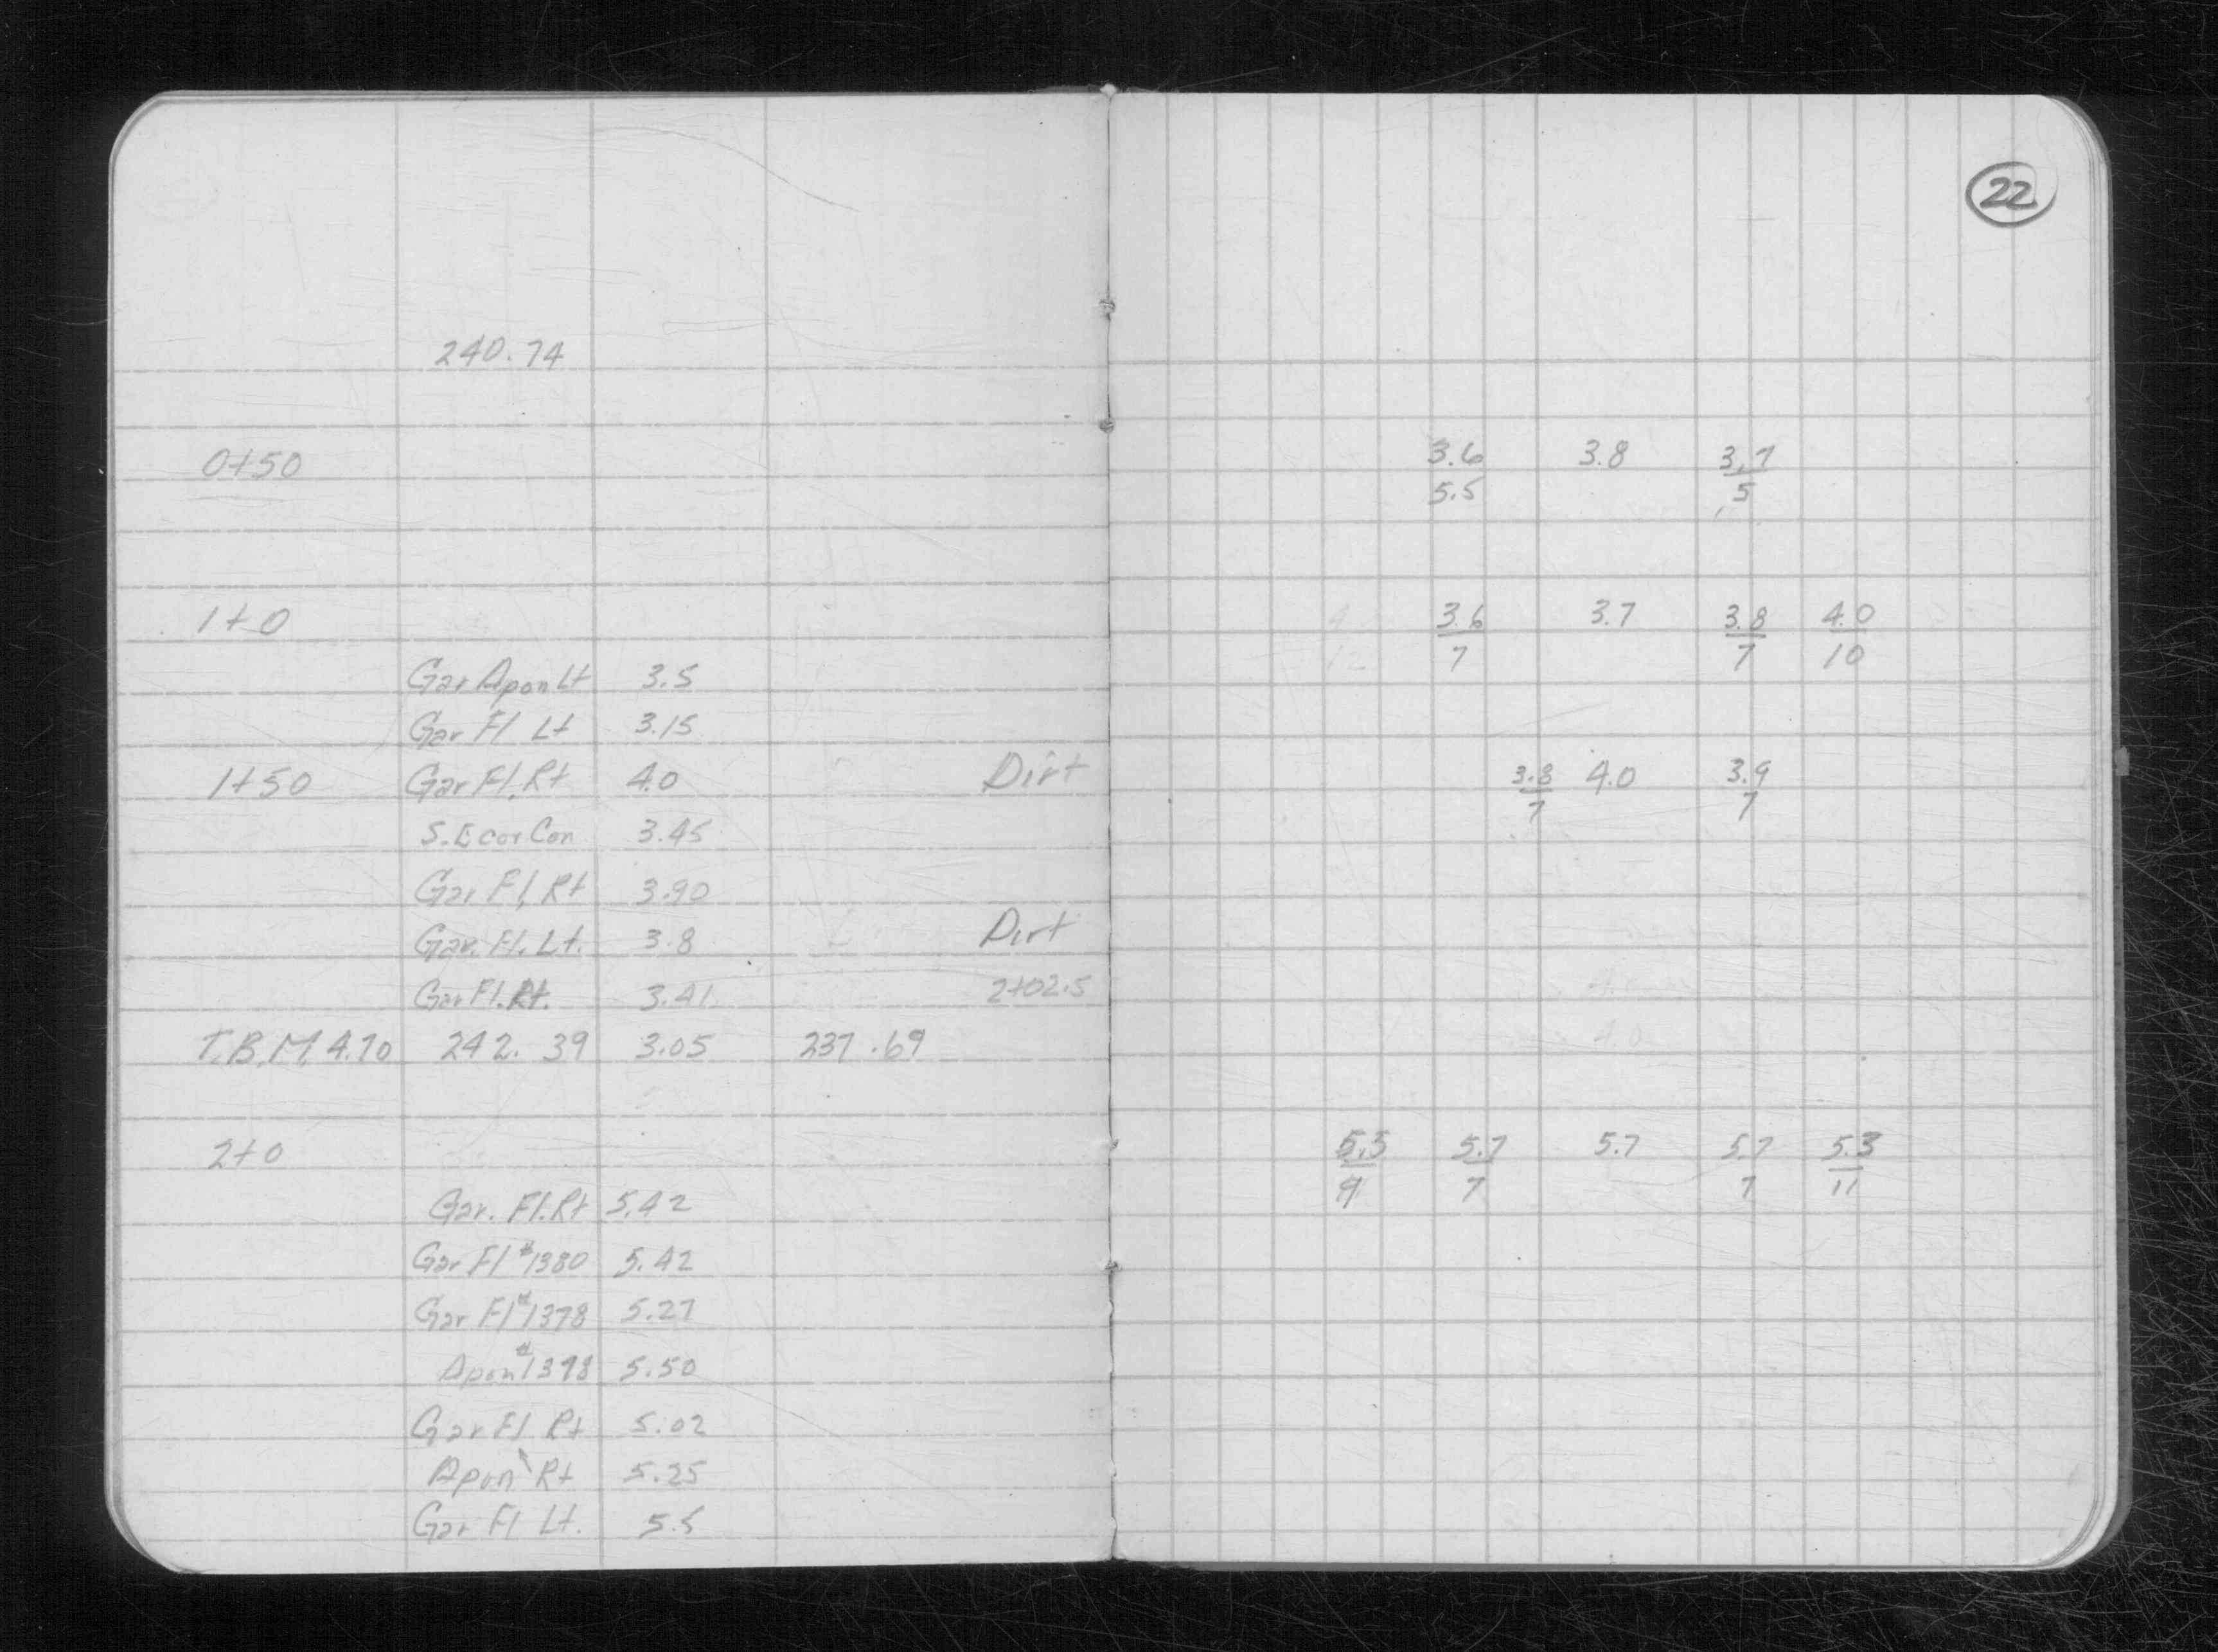 22
240.74
0+50 3.6 3.8 3.7
5.5 5
1+0 3.6 3.7 3.8 4.0
7 7 10
Gar Apon Lt 3.5
Gar Fl Lt 3.15
1+50 Gar Fl. Rt 4.0 Dirt 3.8 4.0 3.9
7 7
S.E cor Con 3.45
Gar Fl, Rt 3.90
Gar. Fl. Lt. 3.8 Dirt
Gar Fl. Rt. 3.41 2+02.5
T.B.M. 4.70 242.39 3.05 237.69
2+0 5.5 5.7 5.7 5.7 5.3
9 7 7 11
Gar. Fl. Rt 5.42
Gar Fl #1380 5.42
Gar Fl #1378 5.27
Apon #1378 5.50
Gar Fl Rt 5.02
Apon Rt 5.25
Gar Fl Lt. 5.5